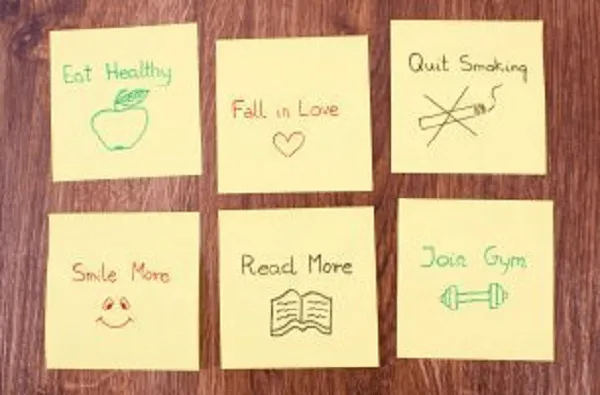 Eat Healthy
Fall in Love
Quit Smoking
Smile More
Read More
Join Gym